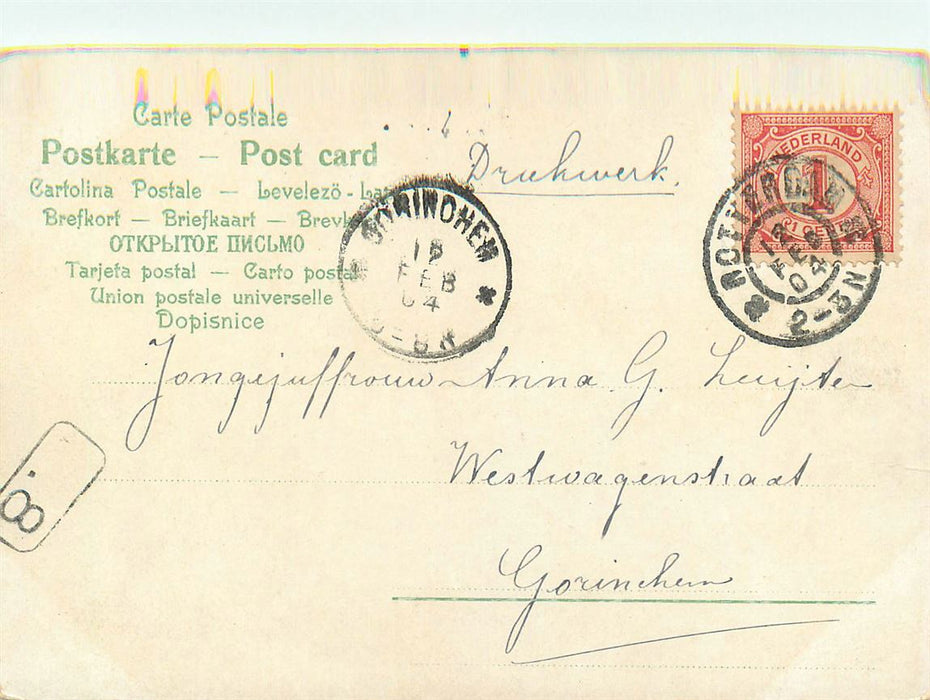 Carte Postale
Postkarte — Post card
Cartolina Postale — Levelező-La
Brefkort — Briefkaart — Brevk
ОТКРЫТОЕ ПИСЬМО
Tarjeta postal — Carto posta
Union postale universelle
Dopisnice
Drukwerk.
NEDERLAND
1
1 CENT
ROTTERDAM
12 FEB 04
2-3N
GORINCHEM
FEB
04
-8N
Jongejuffrouw Anna G. Luijten
Westwagenstraat
Gorinchem
8